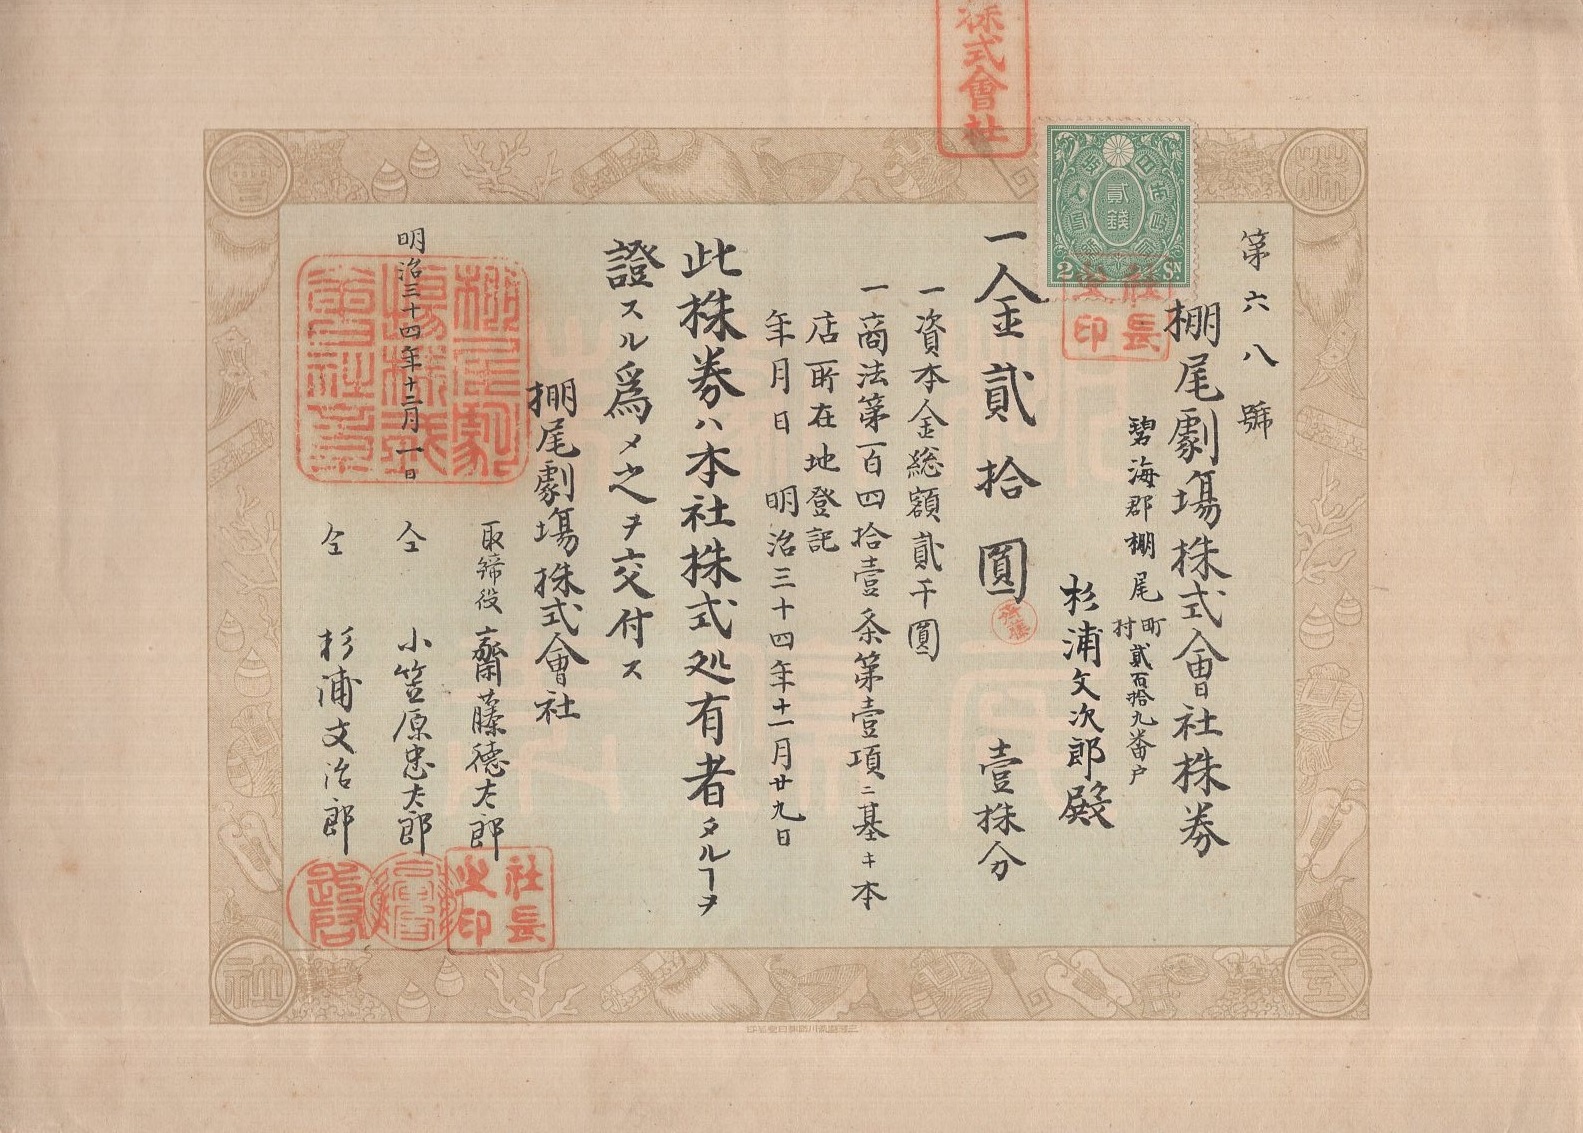 第六八號
棚尾劇場株式會社株券
碧海郡棚尾町村貳百拾九番戸
杉浦文次郎殿
一金貳拾圓 壹株分
一資本金総額貳千圓
一商法第一百四拾壹条第壹項ニ基キ本
店所在地登記
年月日 明治三十四年十一月廿九日
此株券ハ本社株式処有者タルヿヲ
證スル為メ之ヲ交付ス
棚尾劇場株式會社
明治三十四年十二月一日
取締役 齋藤徳太郎
仝 小笠原忠太郎
仝 杉浦文治郎
株式會社
貳錢
2 SN
社長之印
棚尾劇場株式會社章
社長之印
株
式
會
社